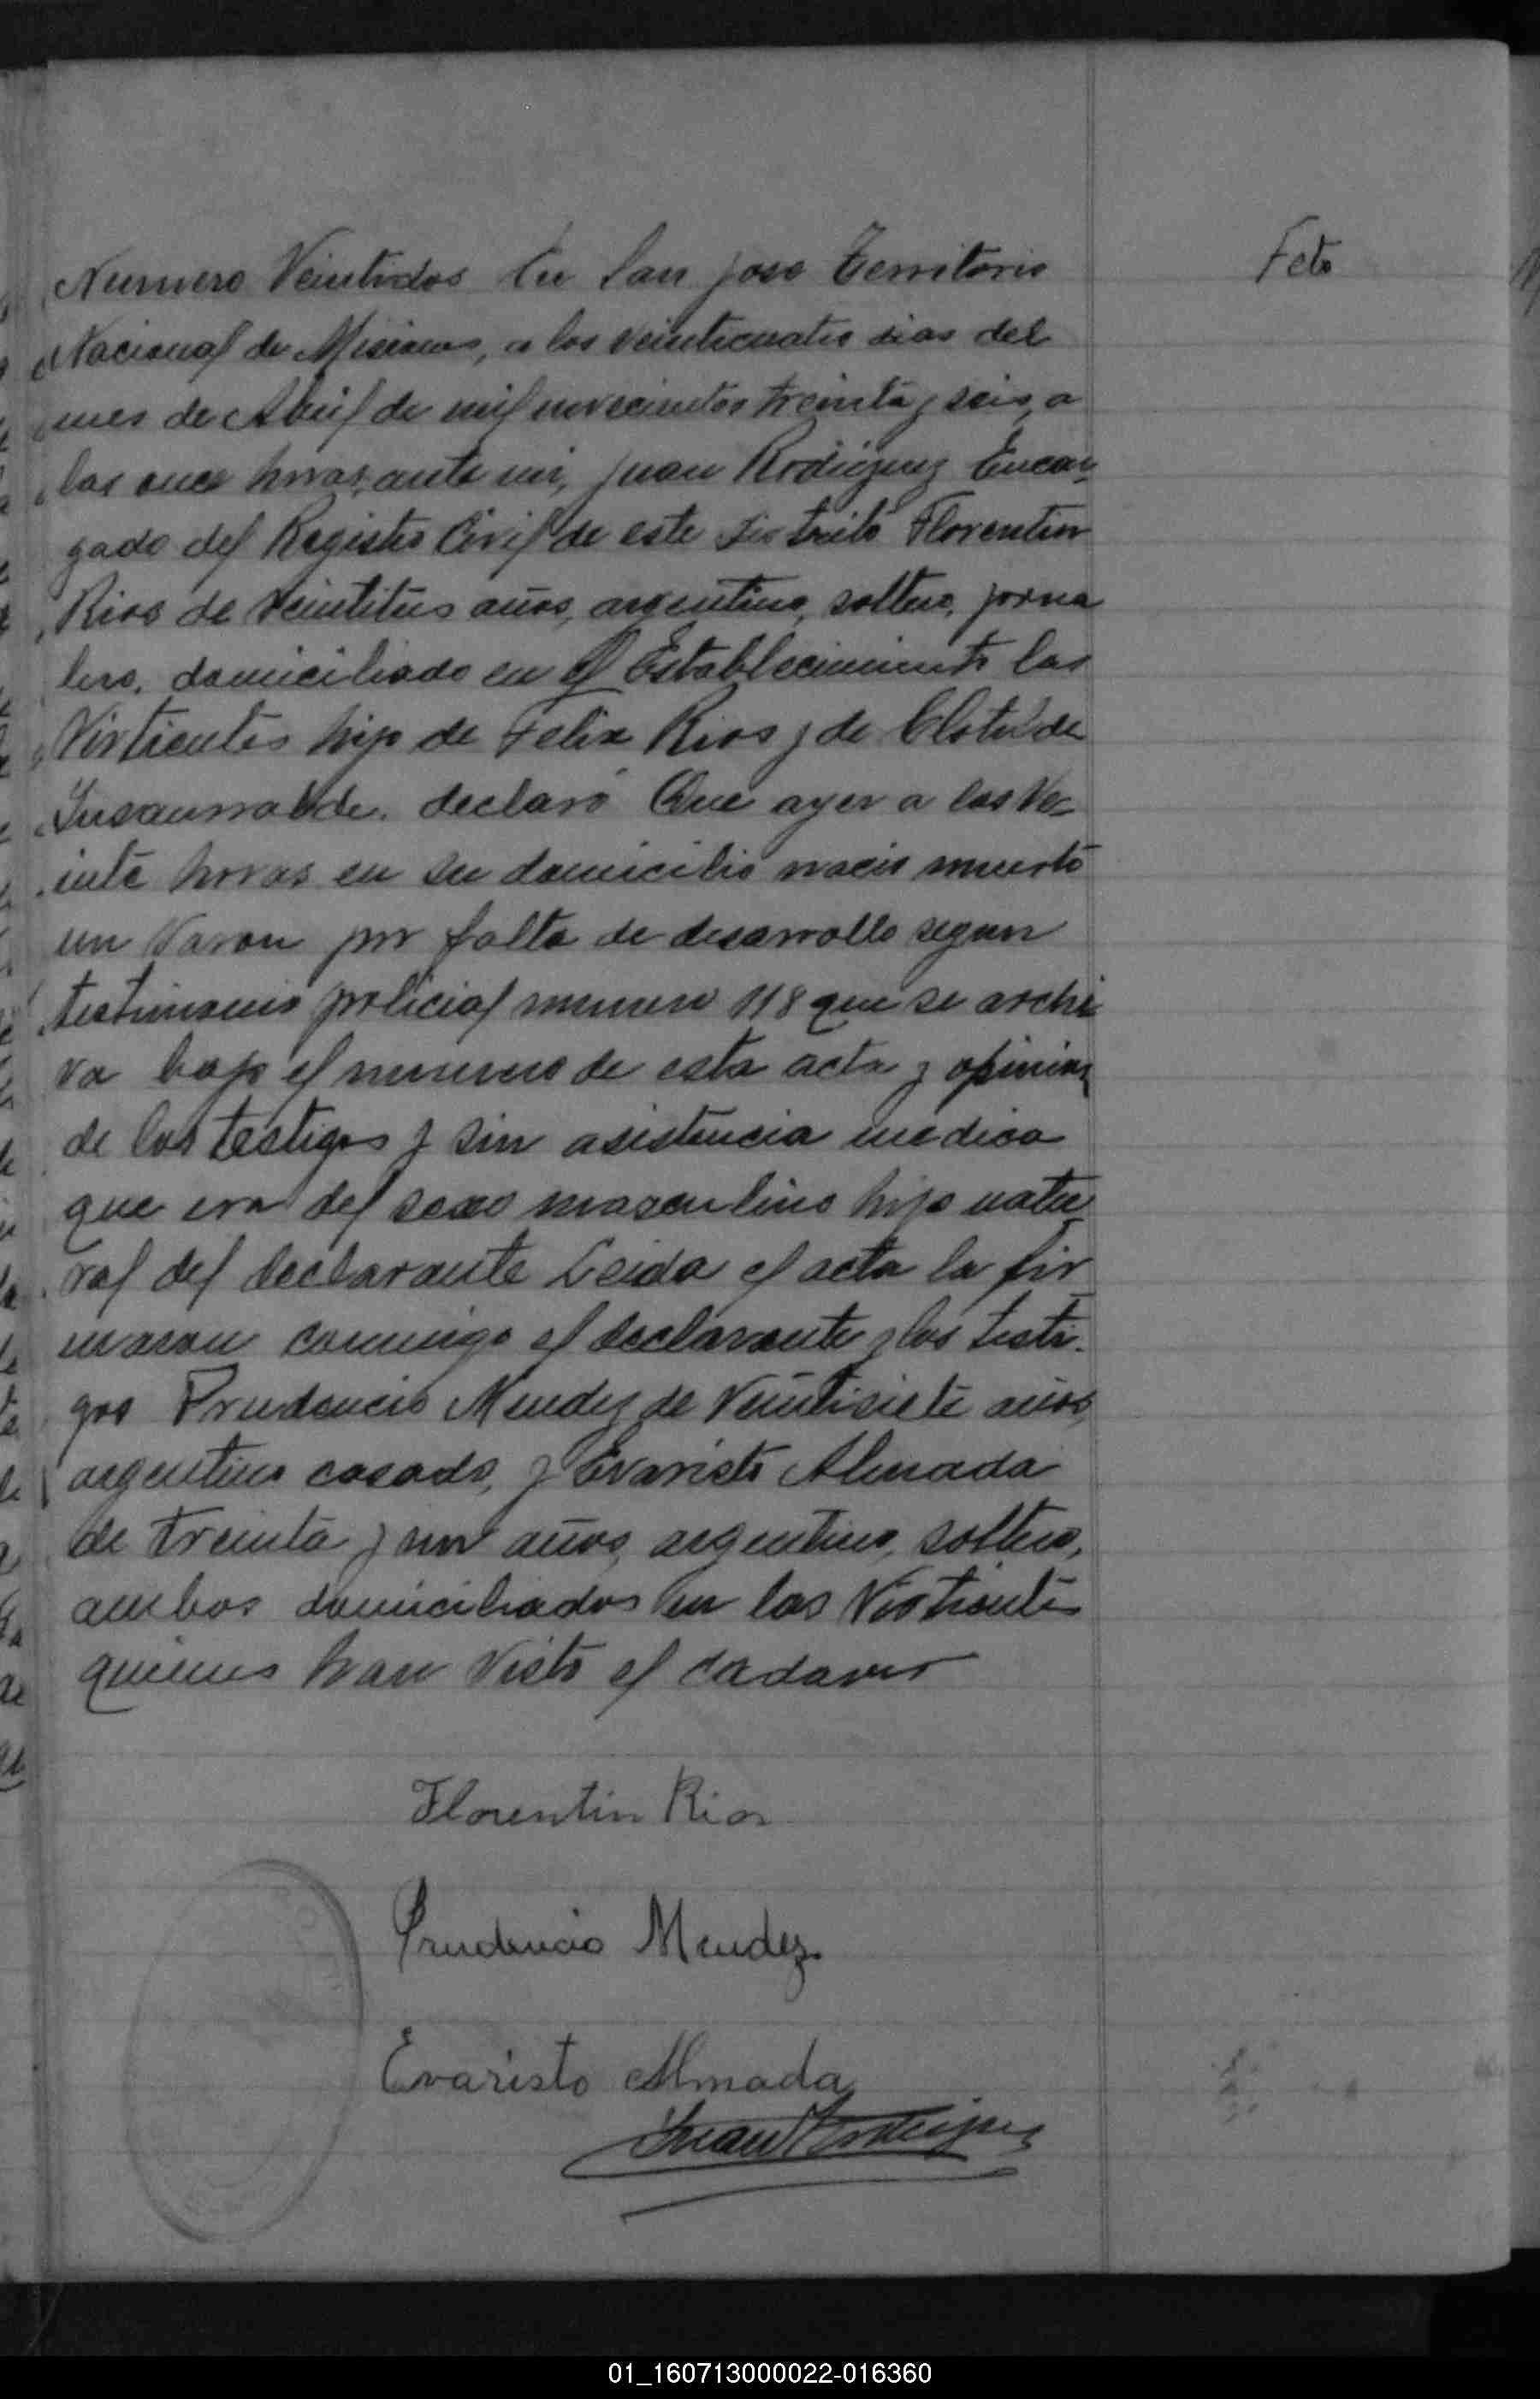 Feto
Numero Veintidos En San Jose Territorio
Nacional de Misiones, a los veinticuatro dias del
mes de Abril de mil novecientos treinta y seis, a
las once horas, ante mi, Juan Rodriguez Encar-
gado del Registro Civil de este Distrito Florentin
Rios de veintitres años, argentino, soltero, jorna
lero, domiciliado en el Establecimiento las
Virtientes hijo de Felix Rios y de Clotilde
Insaurralde. declaró Que ayer a las Ve-
inte horas en su domicilio nacio muerto
un Varon por falta de desarrollo segun
testimonio policial numero 118 que se archi
va bajo el numero de esta acta y opinion
de los testigos y sin asistencia medica
que era del sexo masculino hijo natu-
ral del declarante Leida el acta la fir
maron conmigo el declarante y los testi-
gos Prudencio Mendez de Veintisiete años,
argentino casado, y Evaristo Almada
de treinta y un años, argentino, soltero,
ambos domiciliados en las Virtientes
quienes han Visto el cadaver
Florentin Rios
Prudencio Mendez
Evaristo Almada
Juan Rodriguez
01_160713000022-016360